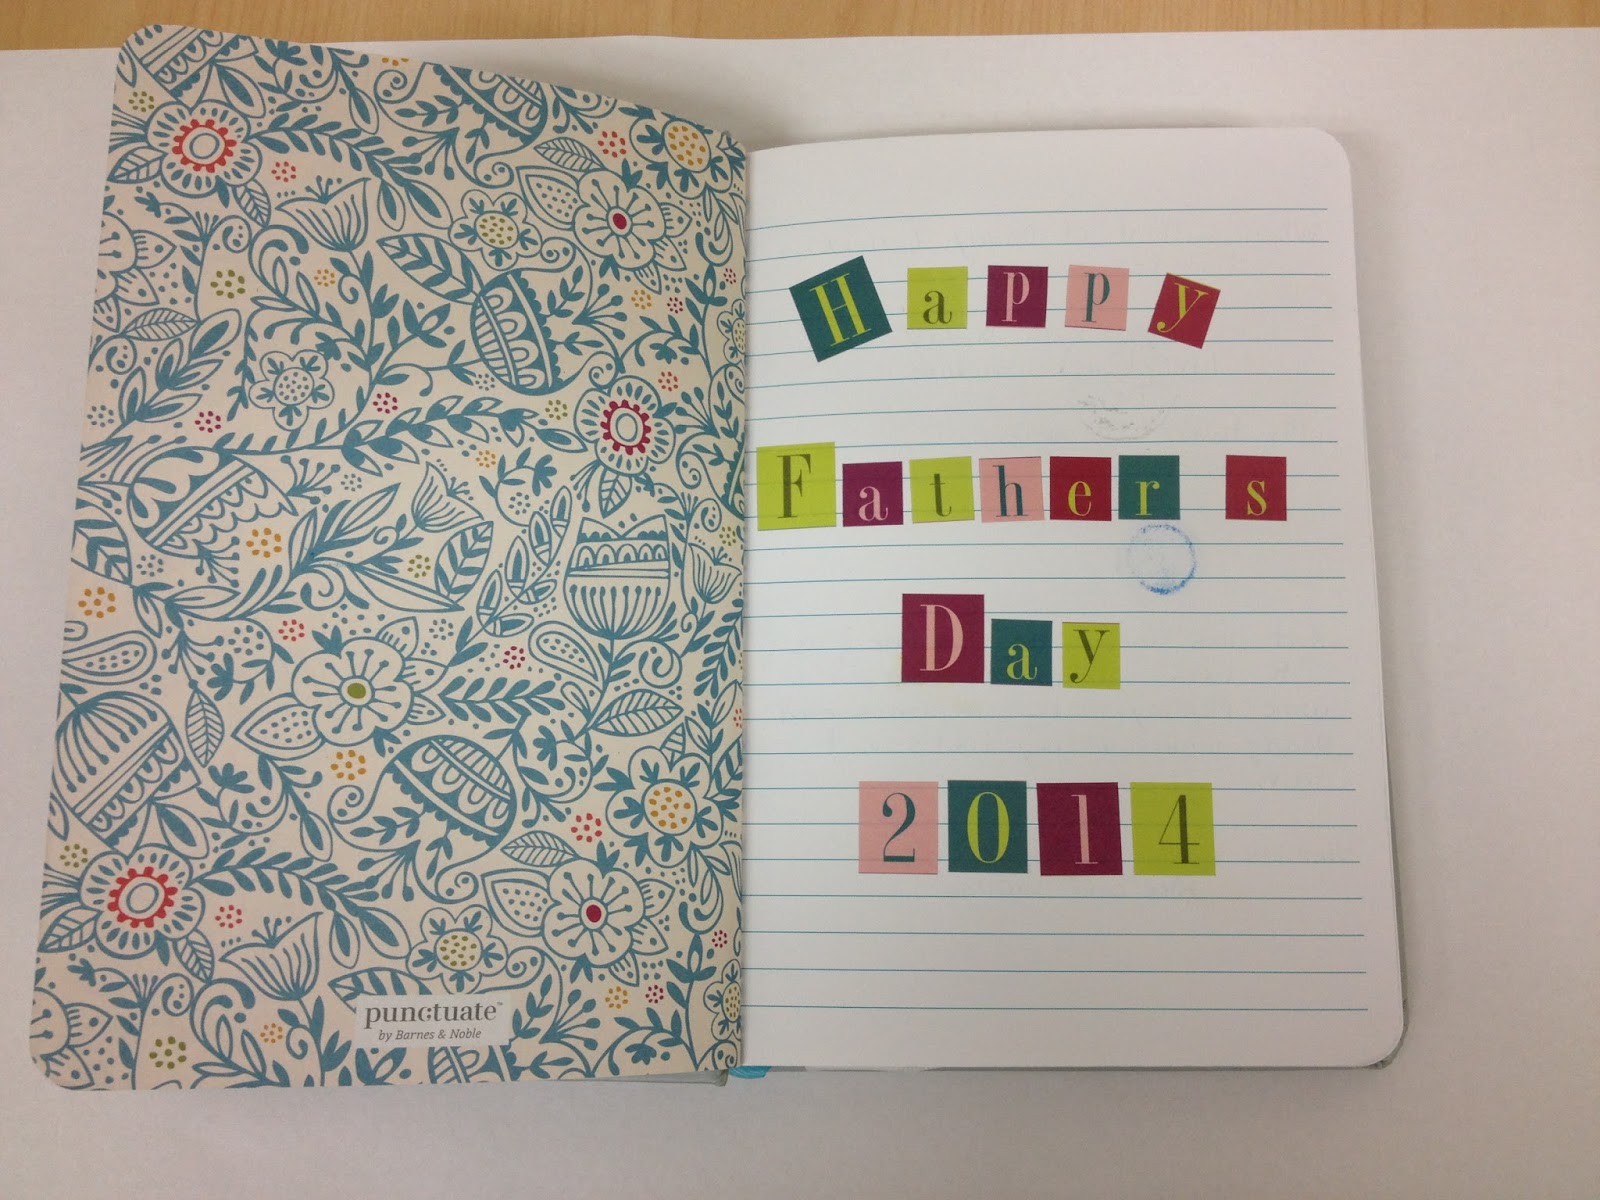 punctuate™
by Barnes & Noble
Happy
Father s
Day
2014